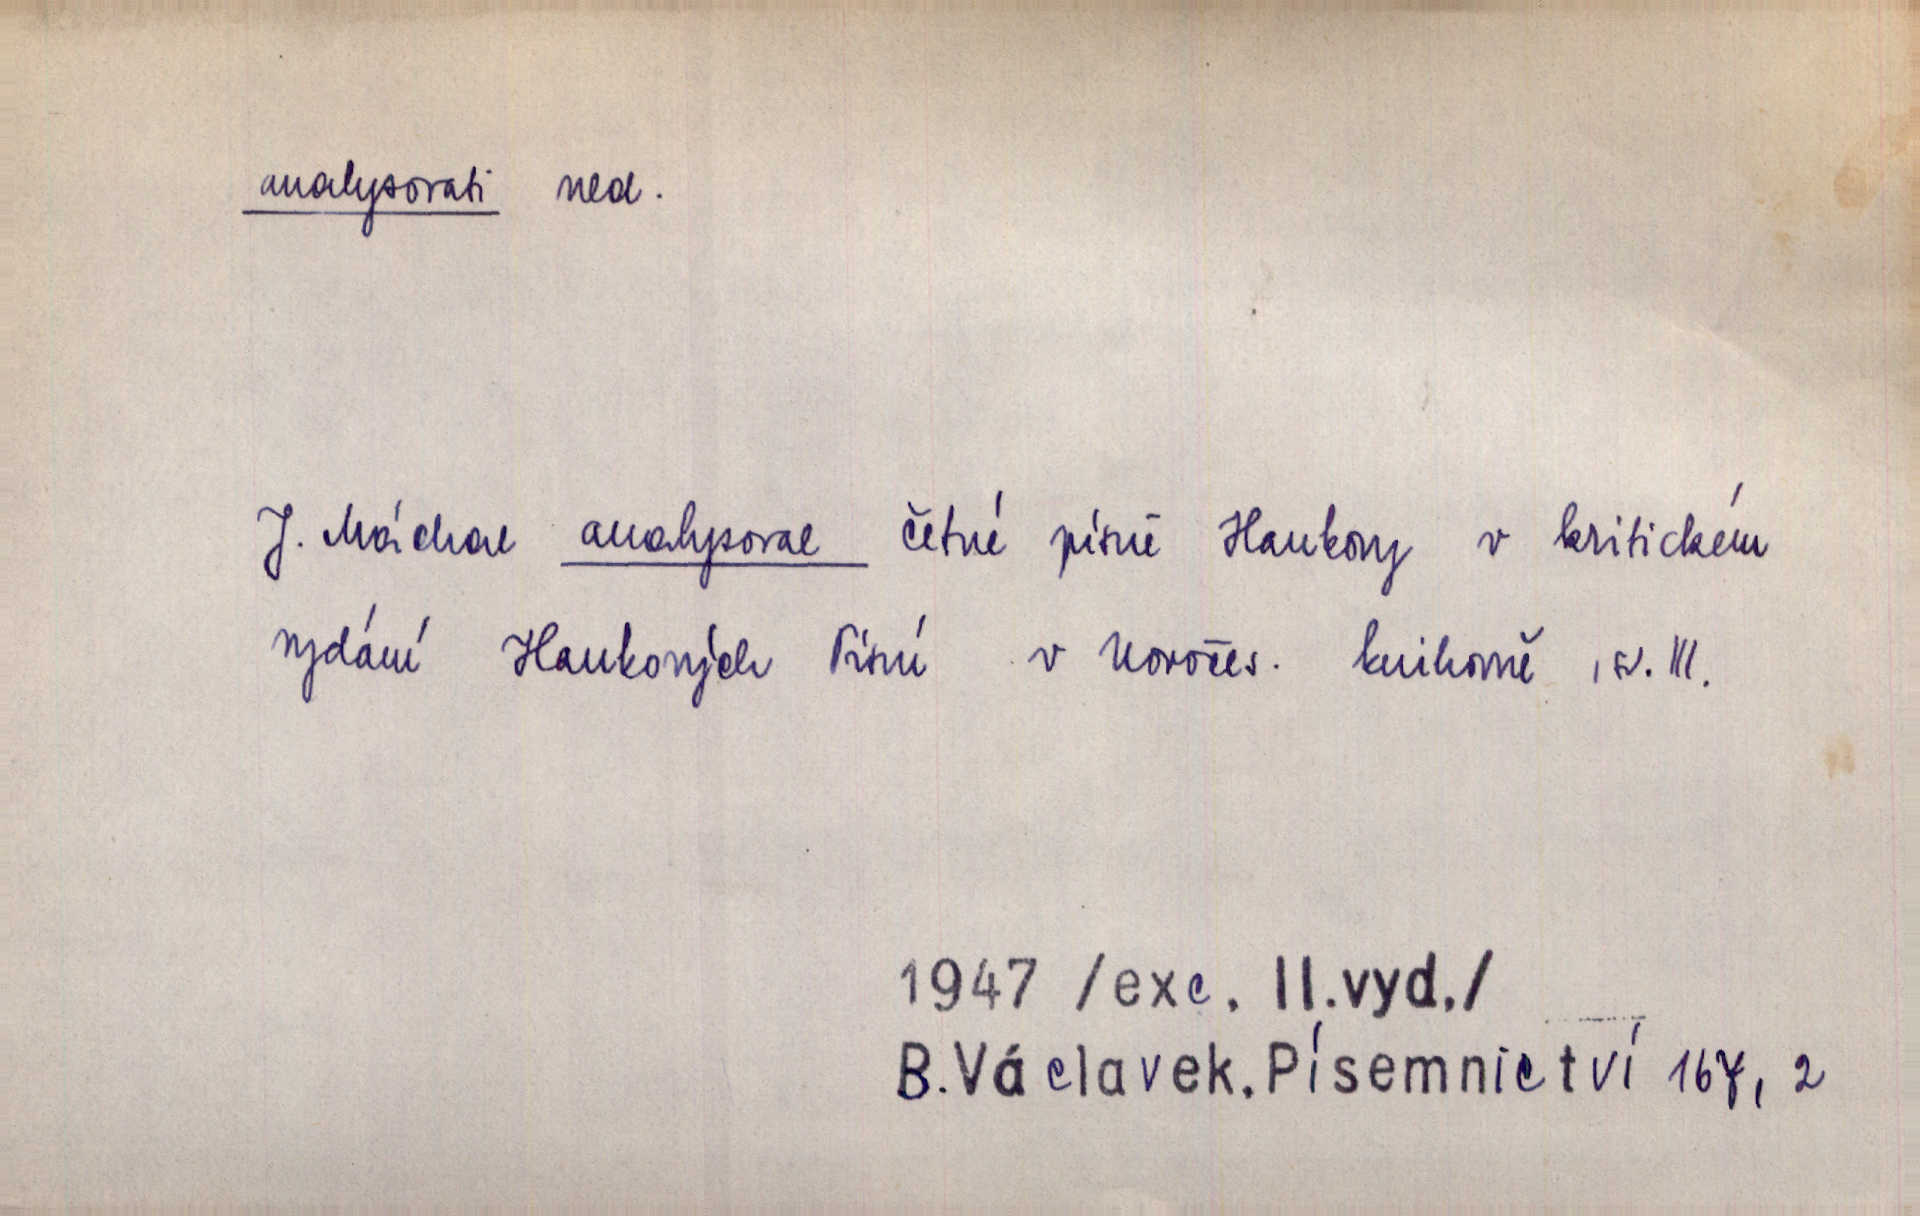 analysovati ned.
J. Máchal analysoval četné písně Hankovy v kritickém
vydání Hankových Písní v Novočes. knihovně, sv. III.
1947 /exc. II.vyd./
B.Václavek.Písemnictví 167, 2